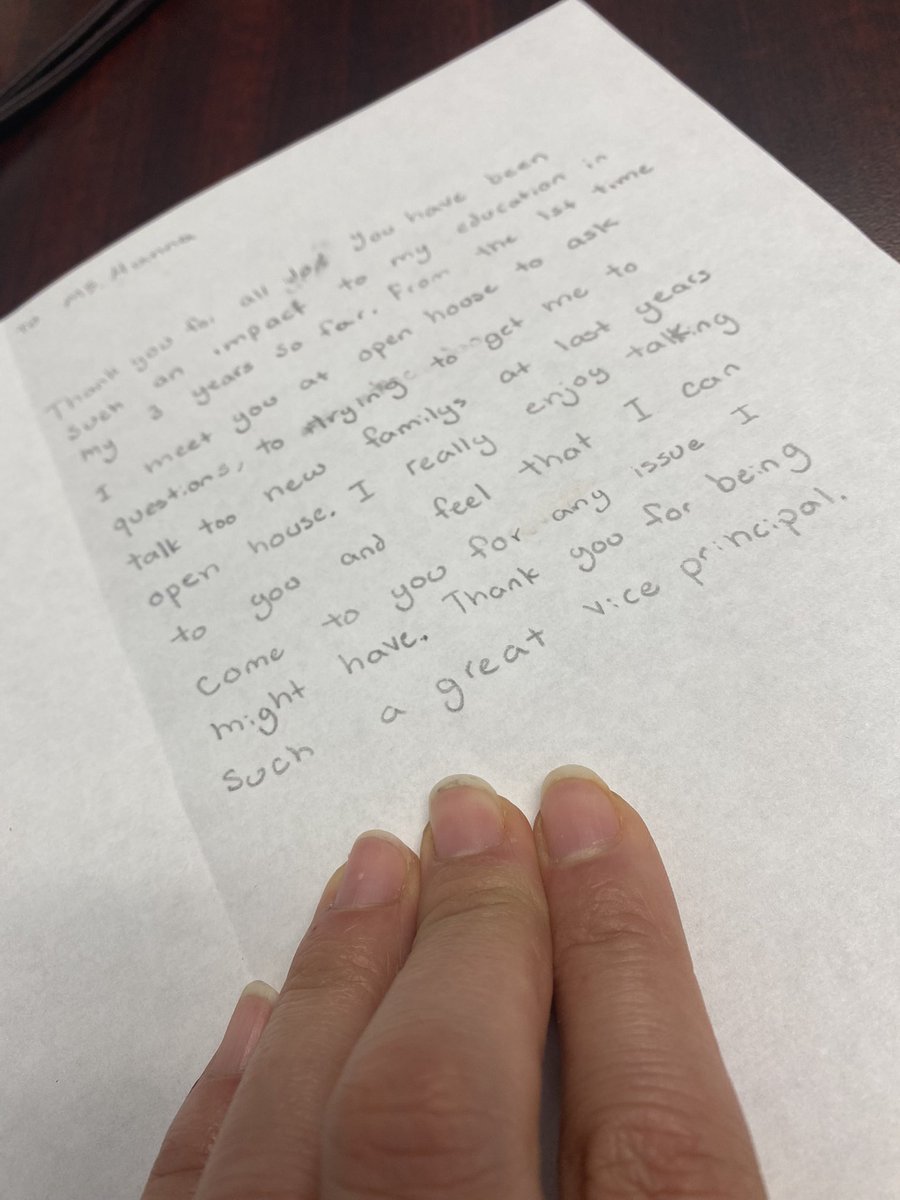 To Ms. Hanna
Thank you for all you have been
such an impact to my education in
my 3 years so far. From the 1st time
I meet you at open house to ask
questions, to trying to get me to
talk too new familys at last years
open house. I really enjoy talking
to you and feel that I can
come to you for any issue I
might have. Thank you for being
such a great vice principal.